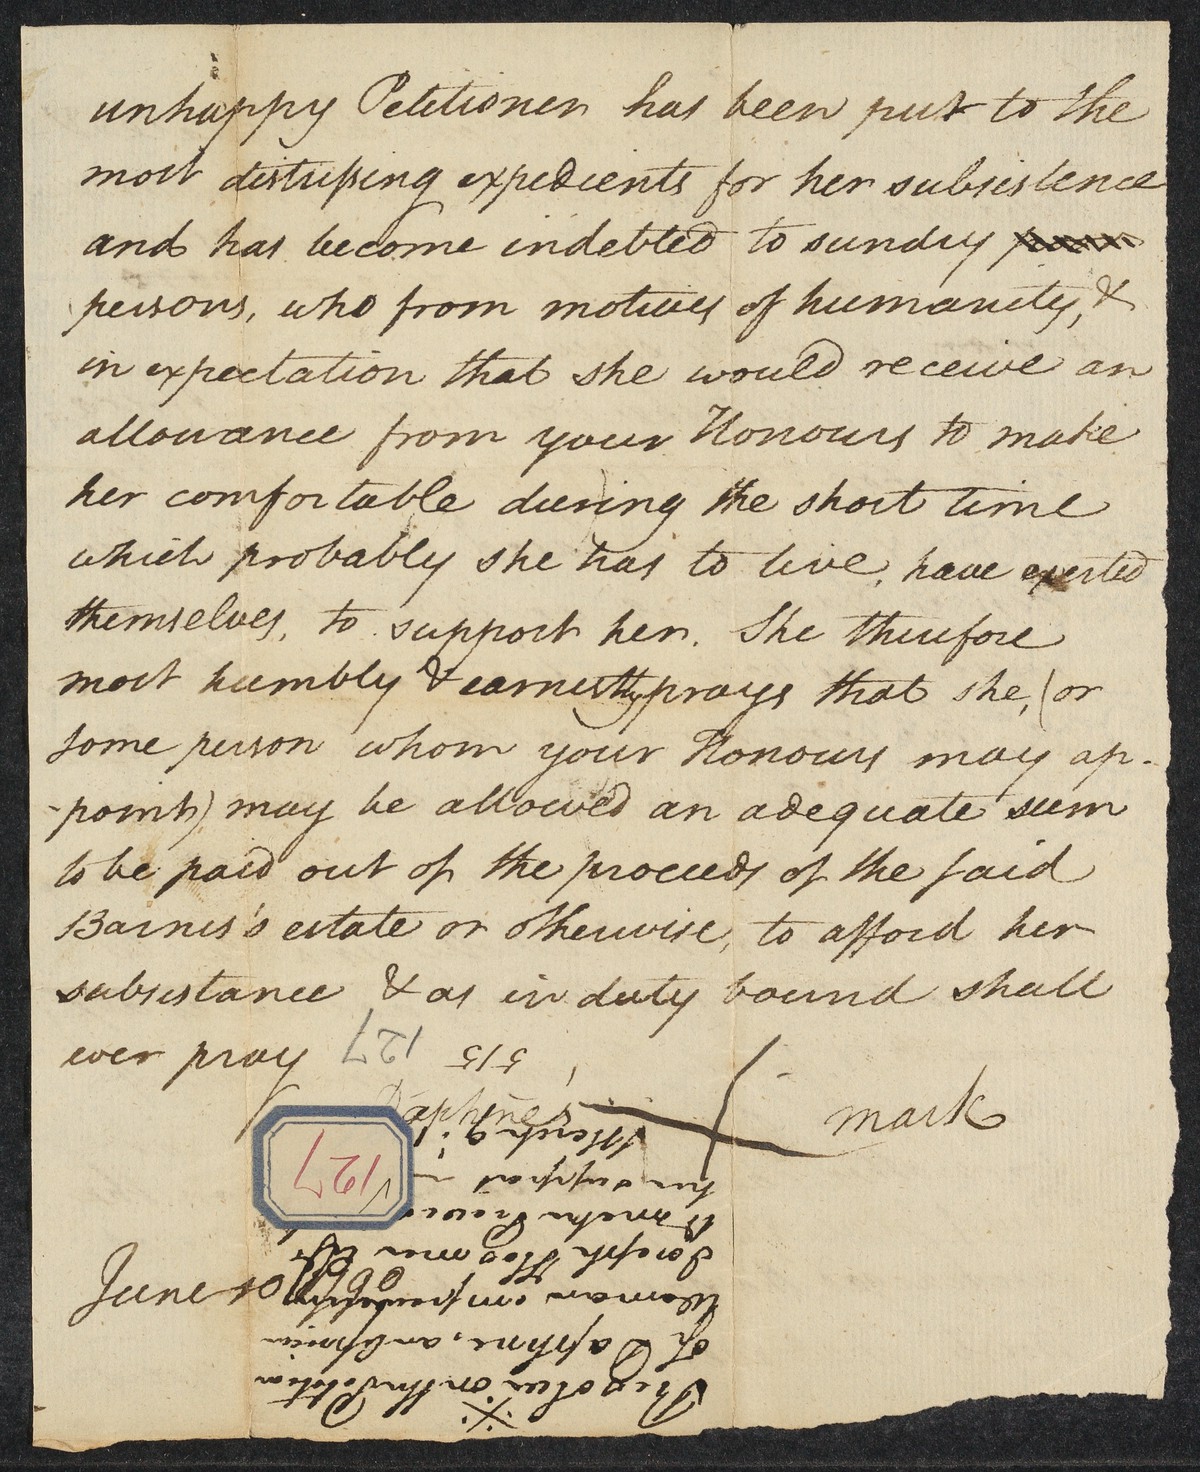 unhappy Petitioner has been put to the
most distressing expedients for her subsistence
and has become indebted to sundry
persons, who from motives of humanity, &
in expectation that she would receive an
allowance from your Honours to make
her comfortable during the short time
which probably she has to live, have exerted
themselves, to support her. She therefore
most humbly & earnestly prays that she, (or
some person whom your Honours may ap-
-point) may be allowed an adequate sum
to be paid out of the proceeds of the said
Barnes's estate or otherwise, to afford her
subsistance & as in duty bound shall
ever pray
127
5/5
mark
127
June 10
Resolve on the Petition
of Daphne, an African
Woman impowering
Joseph Hosmer Esqr
her support
March 9